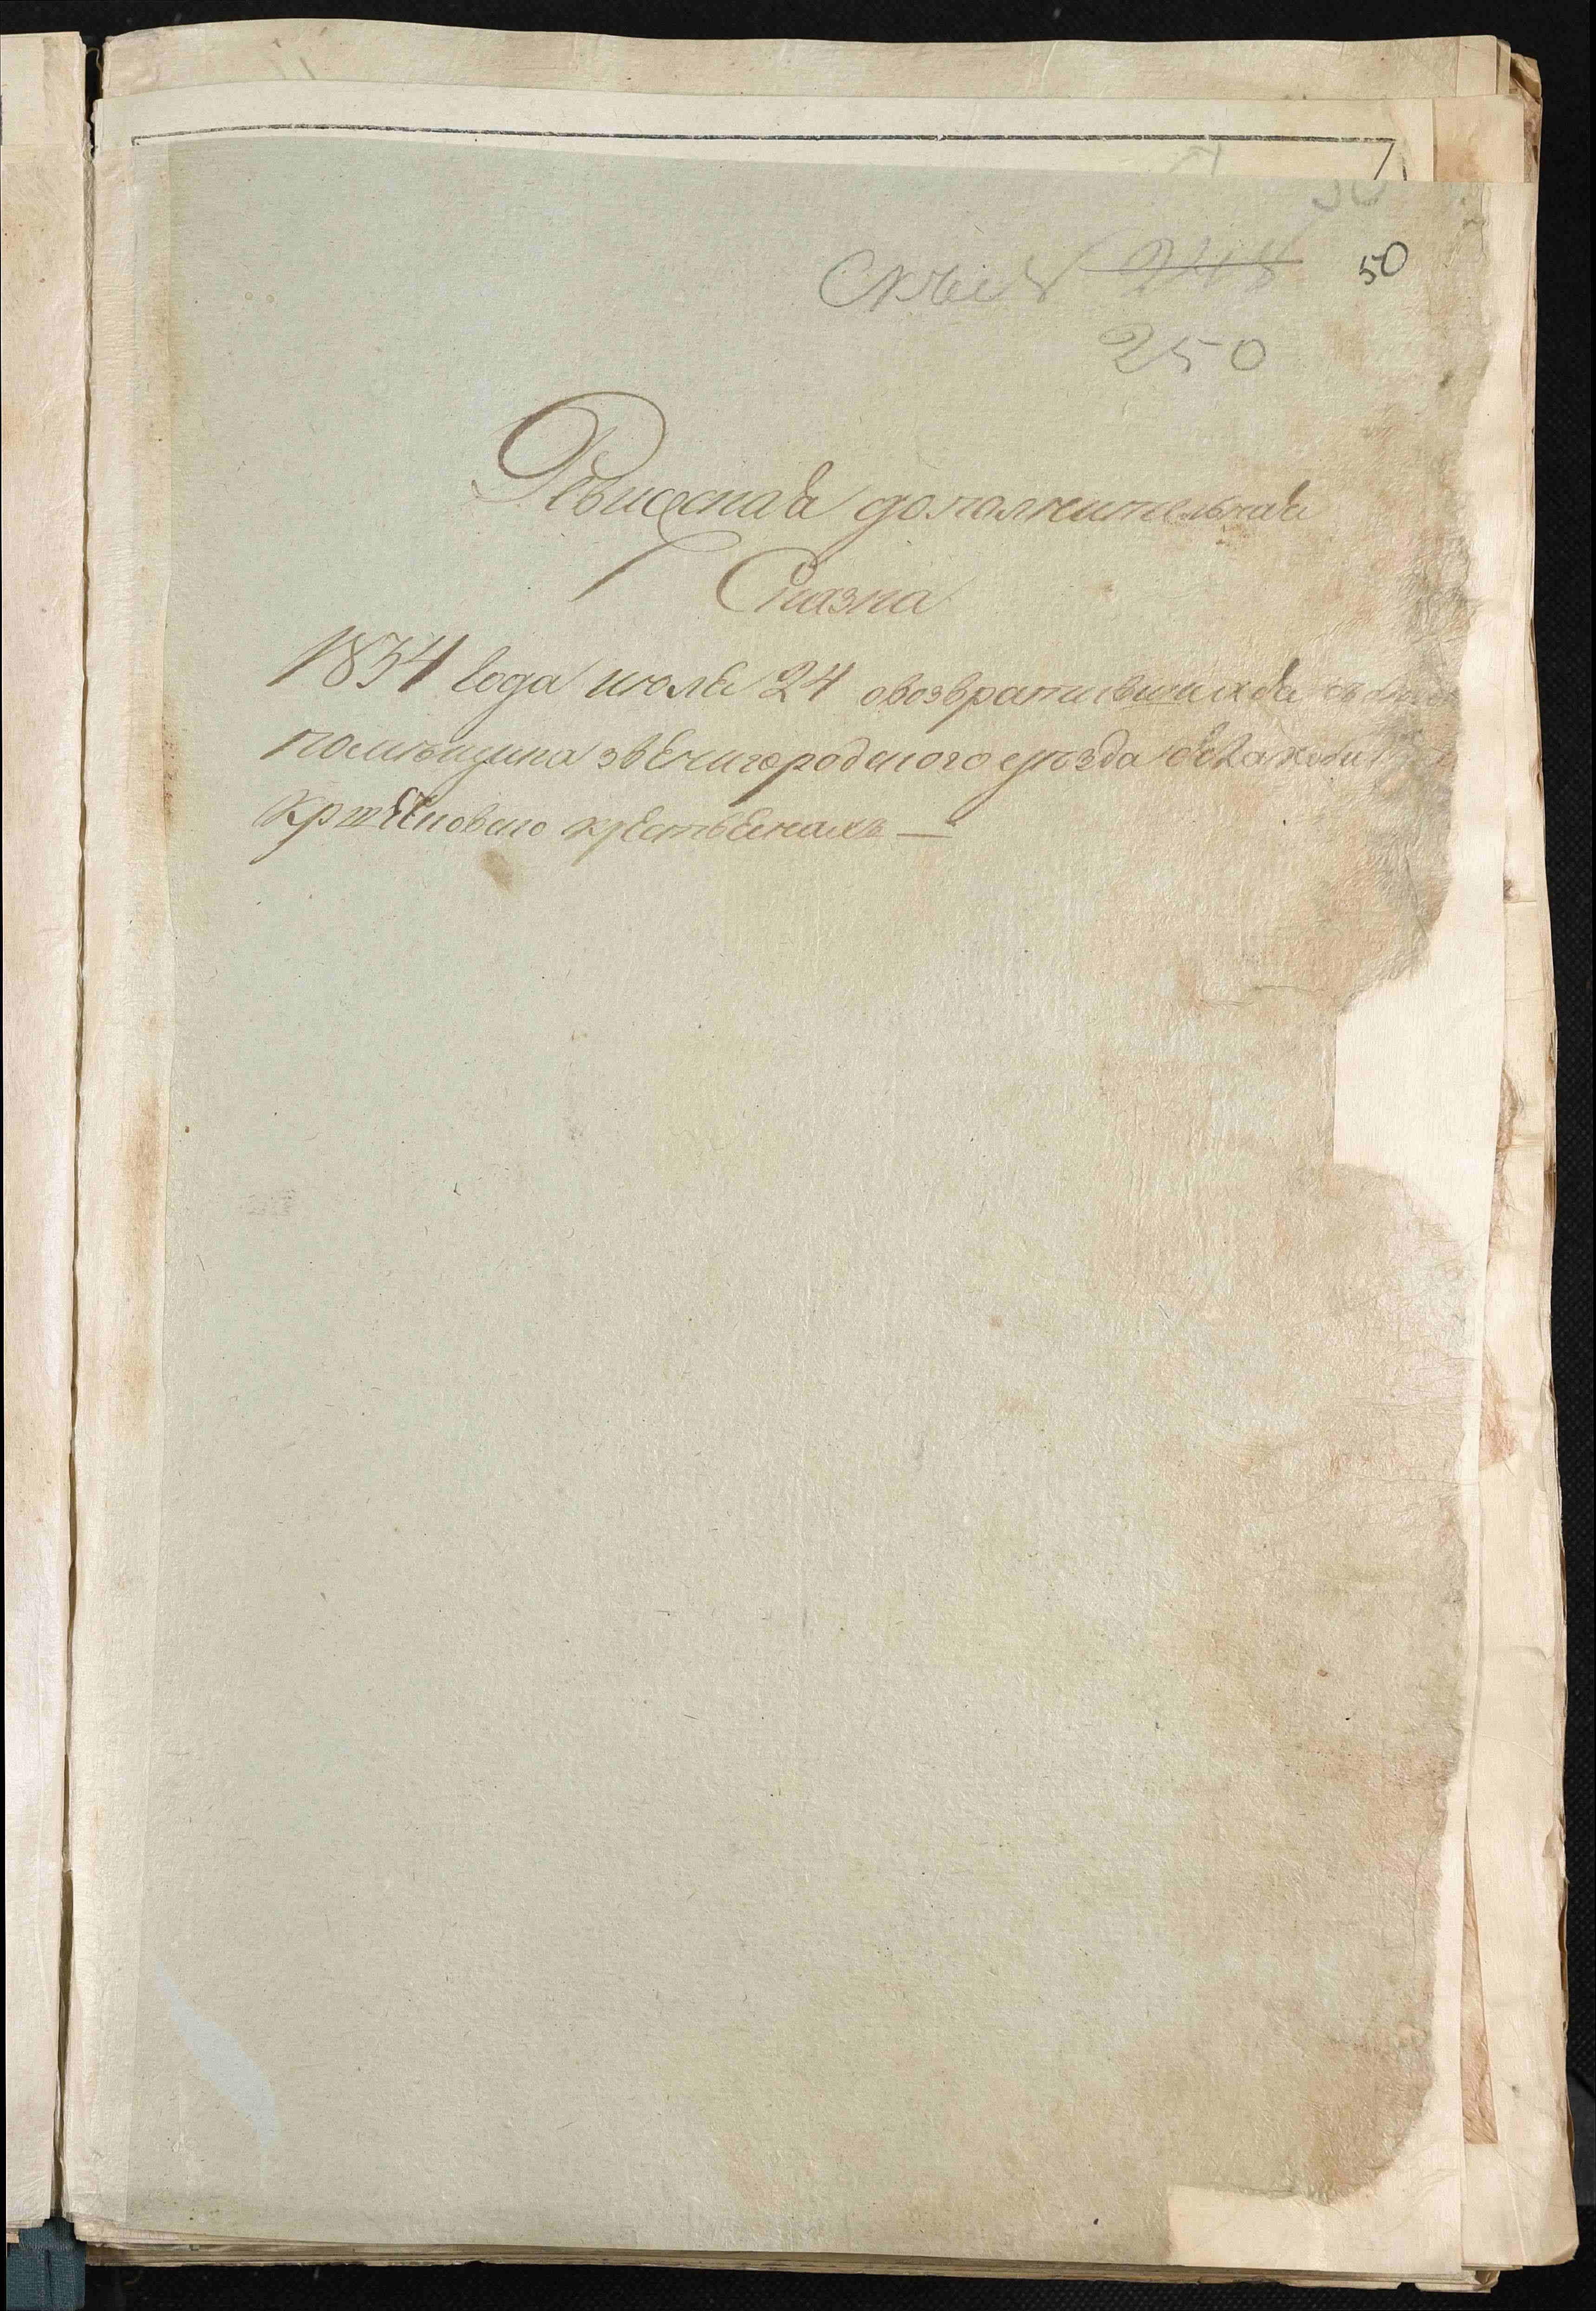 248 50
250
Ревизская дополнительная
Сказка
1834 года июля 24 о возвратившихся съ
помещика звенигородского уезда
крестьянахъ —